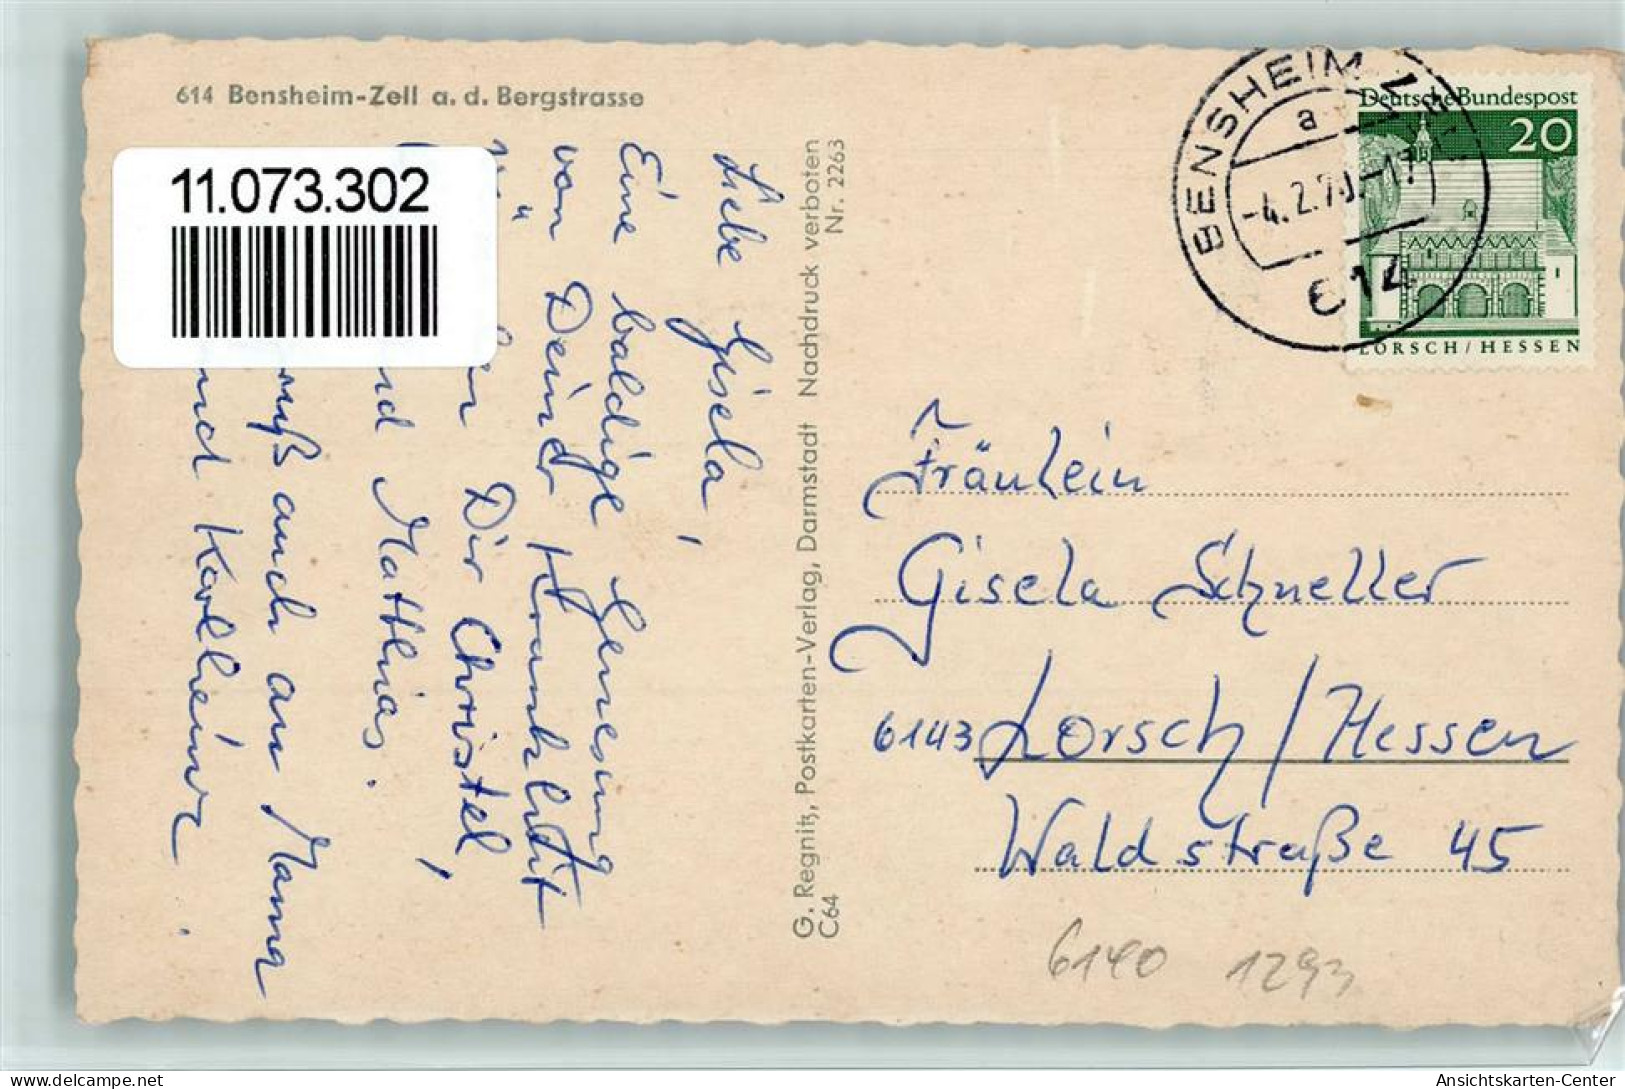 614 Bensheim-Zell a. d. Bergstrasse
11.073.302
Liebe Gisela,
Eine baldige Genesung
von Deiner Krankheit
Dir Christel,
und Mathias.
Gruß auch an Mama
und Karlheinz.
G. Regnitz, Postkarten-Verlag, Darmstadt Nachdruck verboten
C64 Nr. 2263
BENSHEIM-ZELL
a
-4.2.70.-17
614
Deutsche Bundespost
20
LORSCH/HESSEN
Fräulein
Gisela Schneller
6143 Lorsch/Hessen
Waldstraße 45
6140 1293
delcampe.net
Ansichtskarten-Center